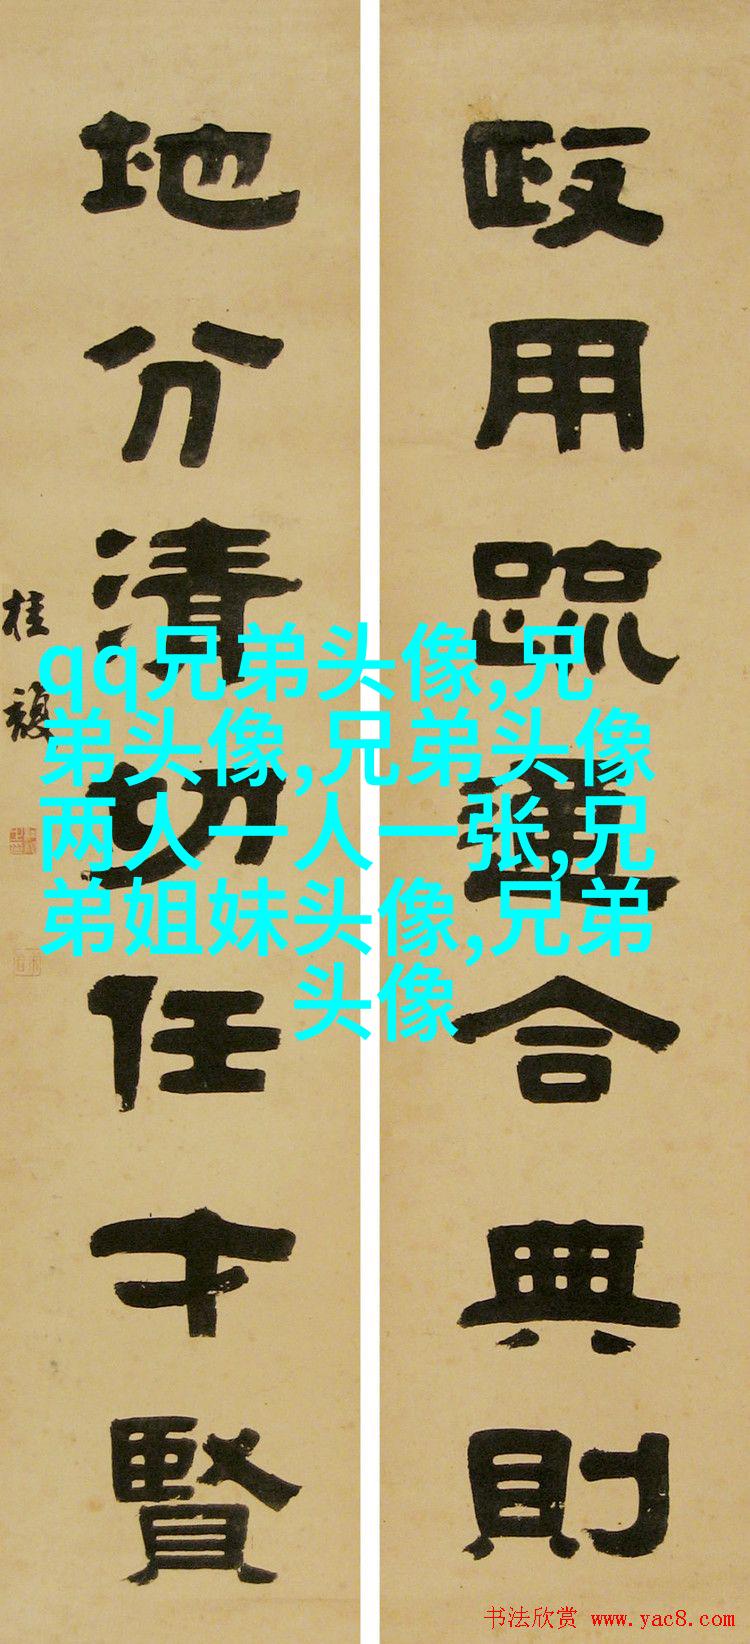 政用疏通合典則
地分清切任才賢
桂馥
qq兄弟头像,兄
弟头像,兄弟头像
两人一人一张,兄
弟姐妹头像,兄弟
头像
书法欣赏 www.yac8.com